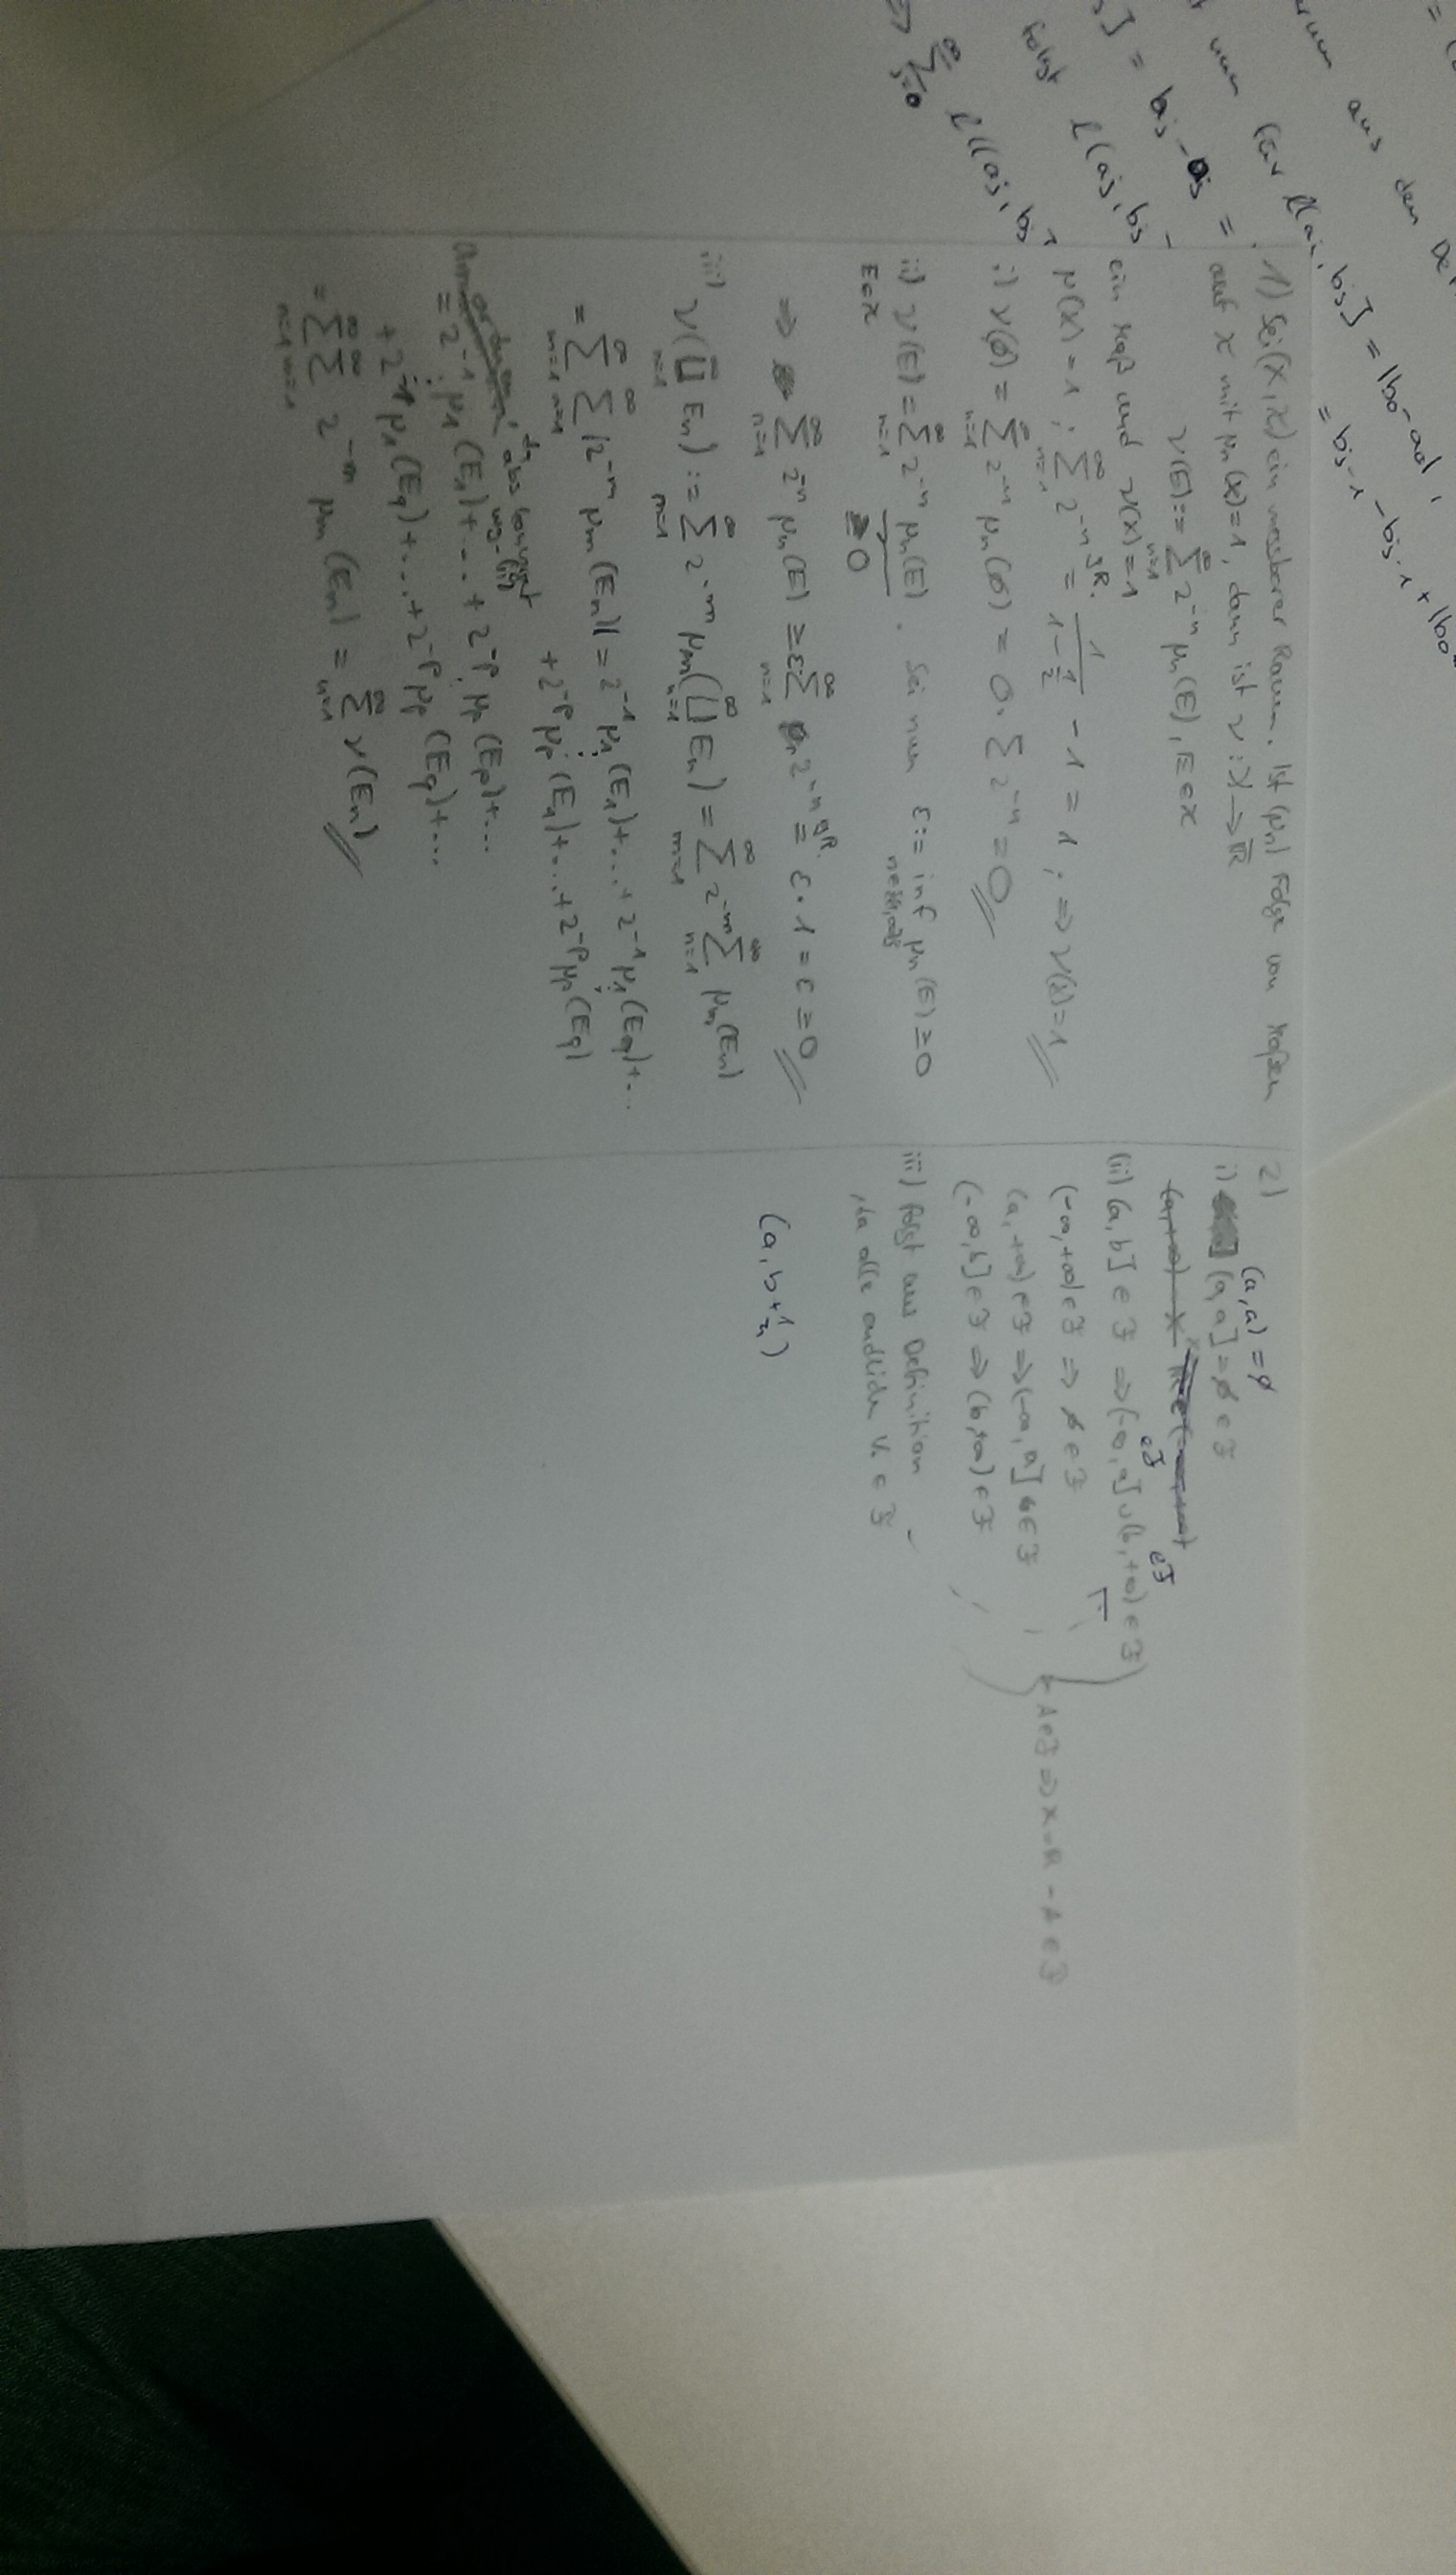 = (
rum aus den De
t nun für l(ai, bi] = |b0-a0|,
] = bis - ais = = bis-1 - bis-1 + |b0-
folgt l(ais, bis]
⇒ ∑_{j=0}^∞ l((ais, bis]
1) Sei (X, X) ein messbarer Raum. Ist (μn) Folge von Maßen
auf X mit μn(X)=1, dann ist ν: X → R̅
ν(E) := ∑_{n=1}^∞ 2^{-n} μn(E), E∈X
ein Maß und ν(X)=1
μ(X) = 1 ; ∑_{n=1}^∞ 2^{-n} =^{gR.} 1/(1-1/2) - 1 = 1 ; ⇒ ν(X)=1
i) ν(ø) = ∑_{n=1}^∞ 2^{-n} μn(ø) = 0 · ∑ 2^{-n} = 0
ii) ν(E) = ∑_{n=1}^∞ 2^{-n} μn(E) . Sei nun ε := inf μn(E) ≥ 0
E∈X ≥ 0
⇒ ∑_{n=1}^∞ 2^{-n} μn(E) ≥ ε·∑_{n=1}^∞ 2^{-n} =^{gR.} ε · 1 = ε ≥ 0
iii) ν(∐_{n=1}^∞ En) := ∑_{m=1}^∞ 2^{-m} μm(∐_{n=1}^∞ En) = ∑_{m=1}^∞ 2^{-m} ∑_{n=1}^∞ μm(En)
= ∑_{m=1}^∞ ∑_{n=1}^∞ |2^{-m} μm(En)| = 2^{-1} μ1(E1)+...+2^{-1} μ1(Eq)+...
+ 2^{-p} μp(E1)+...+2^{-p} μp(Eq)
da abs konvergent wg. (ii)
= 2^{-1} μ1(E1)+...+2^{-p} μp(Ep)+...
+ 2^{-1} μ1(Eq)+...+2^{-p} μp(Eq)+...
= ∑_{n=1}^∞ ∑_{m=1}^∞ 2^{-m} μm(En) = ∑_{n=1}^∞ ν(En)
2) (a,a) = ø
i) (a,a] = ø ∈ F
(ii) (a,b] ∈ F ⇒ (-∞,a] ∪ (b,+∞) ∈ F
∈F ∈F
(-∞,+∞) ∈ F ⇒ ø ∈ F
(a,+∞) ∈ F ⇒ (-∞,a] ∈ F
A∈F ⇒ X=R - A ∈ F
(-∞,b] ∈ F ⇒ (b,+∞) ∈ F
iii) folgt aus Definition
, da alle endlichen V. ∈ F
(a, b+1/n)